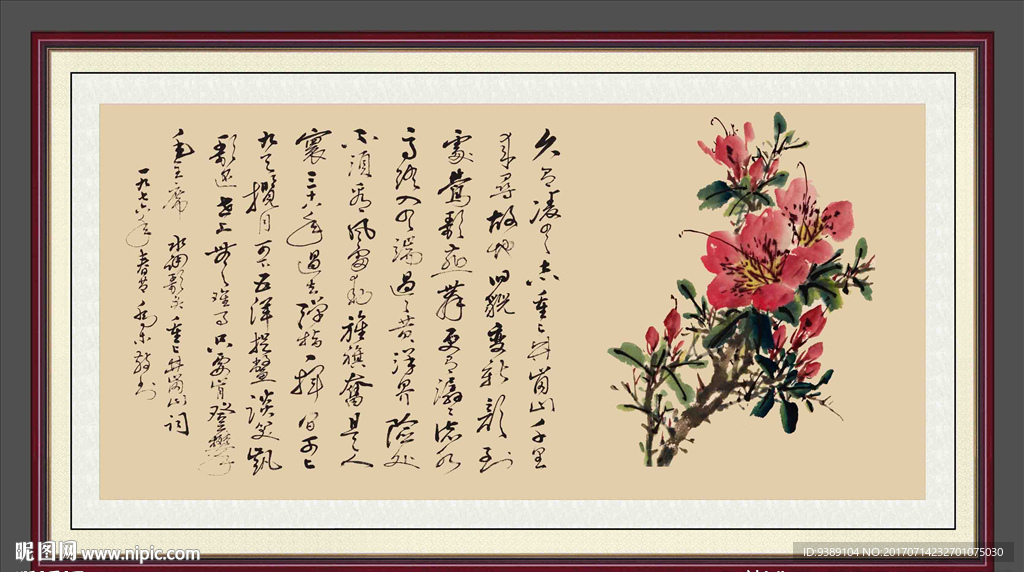 久有凌云志重上井崗山千里
来尋故地旧貌變新顏到
處鶯歌燕舞更有潺潺流水
高路入云端過了黄洋界險处
不須看風雷動旌旗奮是人
寰三十八年過去彈指一揮間可上
九天攬月可下五洋捉鱉談笑凱
歌还世上無難事只要肯登攀
毛主席 水調歌头重上井崗山詞
一九七六年春节 敬书
昵图网 www.nipic.com
ID:9389104 NO:20170714232701075030